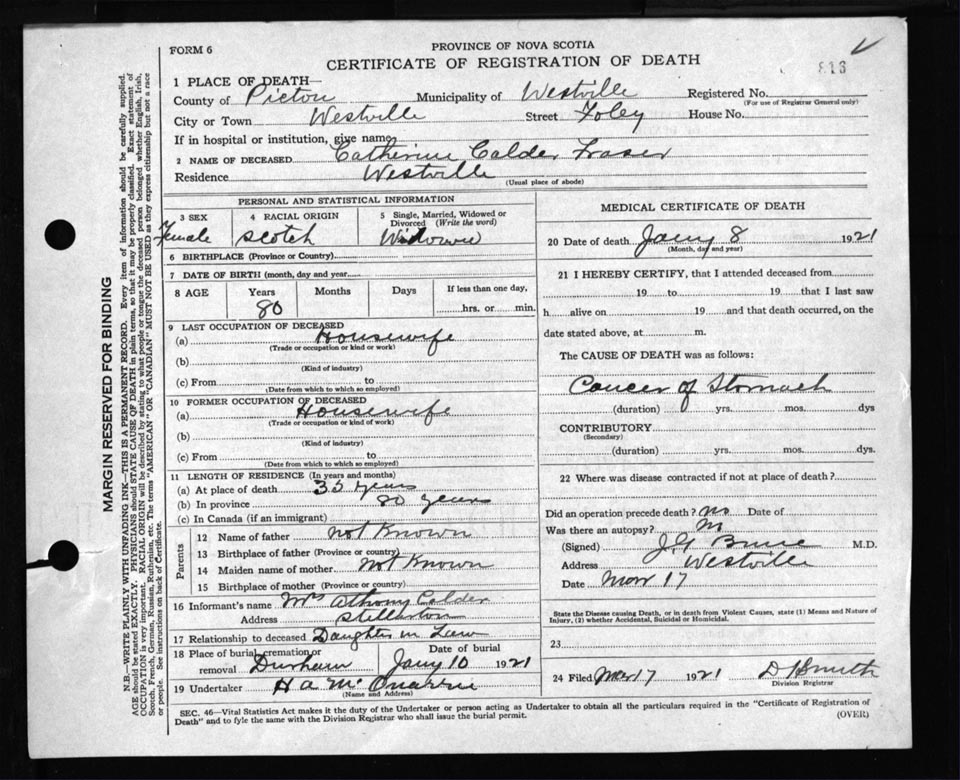 FORM 6
PROVINCE OF NOVA SCOTIA
CERTIFICATE OF REGISTRATION OF DEATH
813
1 PLACE OF DEATH—
County of Pictou Municipality of Westville Registered No.
(For use of Registrar General only)
City or Town Westville Street Foley House No.
If in hospital or institution, give name
2 NAME OF DECEASED Catherine Calder Fraser
Residence Westville
(Usual place of abode)
PERSONAL AND STATISTICAL INFORMATION
3 SEX
Female
4 RACIAL ORIGIN
Scotch
5 Single, Married, Widowed or
Divorced (Write the word)
Widow
6 BIRTHPLACE (Province or Country)
7 DATE OF BIRTH (month, day and year)
8 AGE Years Months Days If less than one day,
80 hrs. or min.
9 LAST OCCUPATION OF DECEASED
(a) Housewife
(Trade or occupation or kind or work)
(b)
(Kind of industry)
(c) From to
(Date from which to which so employed)
10 FORMER OCCUPATION OF DECEASED
(a) Housewife
(Trade or occupation or kind of work)
(b)
(Kind of industry)
(c) From to
(Date from which to which so employed)
11 LENGTH OF RESIDENCE (In years and months)
(a) At place of death 35 years
(b) In province 80 years
(c) In Canada (if an immigrant)
Parents
12 Name of father not Known
13 Birthplace of father (Province or country)
14 Maiden name of mother not Known
15 Birthplace of mother (Province or country)
16 Informant's name Mrs Athony Calder
Address Stellarton
17 Relationship to deceased Daughter in Law
18 Place of burial, cremation or
removal Durham
Date of burial
Jany 10 1921
19 Undertaker H a Mc Quarrie
(Name and Address)
MEDICAL CERTIFICATE OF DEATH
20 Date of death Jany 8 1921
(Month, day and year)
21 I HEREBY CERTIFY, that I attended deceased from
19 to 19 that I last saw
h alive on 19 and that death occurred, on the
date stated above, at m.
The CAUSE OF DEATH was as follows:
Cancer of Stomach
(duration) yrs. mos. dys
CONTRIBUTORY
(Secondary)
(duration) yrs. mos. dys.
22 Where was disease contracted if not at place of death?
Did an operation precede death? no Date of
Was there an autopsy? no
(Signed) Bruce M.D.
Address Westville
Date Mar 17
State the Disease causing Death, or in death from Violent Causes, state (1) Means and Nature of
Injury, (2) whether Accidental, Suicidal or Homicidal.
23
24 Filed Mar 17 1921
Division Registrar
SEC. 46—Vital Statistics Act makes it the duty of the Undertaker or person acting as Undertaker to obtain all the particulars required in the "Certificate of Registration of
Death" and to fyle the same with the Division Registrar who shall issue the burial permit.
(OVER)
MARGIN RESERVED FOR BINDING
N.B.—WRITE PLAINLY WITH UNFADING INK—THIS IS A PERMANENT RECORD. Every item of information should be carefully supplied.
AGE should be stated EXACTLY. PHYSICIANS should STATE CAUSE OF DEATH in plain terms, so that it may be properly classified. Exact statement of
OCCUPATION is very important. RACIAL ORIGIN will be described by stating to what people or tongue the deceased person belonged whether English, Irish,
Scotch, French, German, Russian, Ruthenian, etc. The terms "AMERICAN" OR "CANADIAN" MUST NOT BE USED as they express citizenship but not a race
or people. See instructions on back of Certificate.